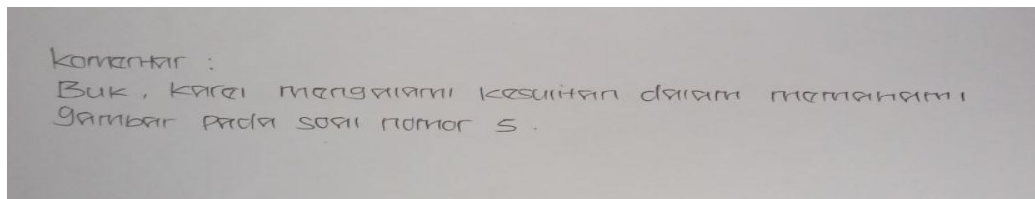 Komentar :
Buk, Karei mengalami kesulitan dalam memahami
gambar pada soal nomor 5.